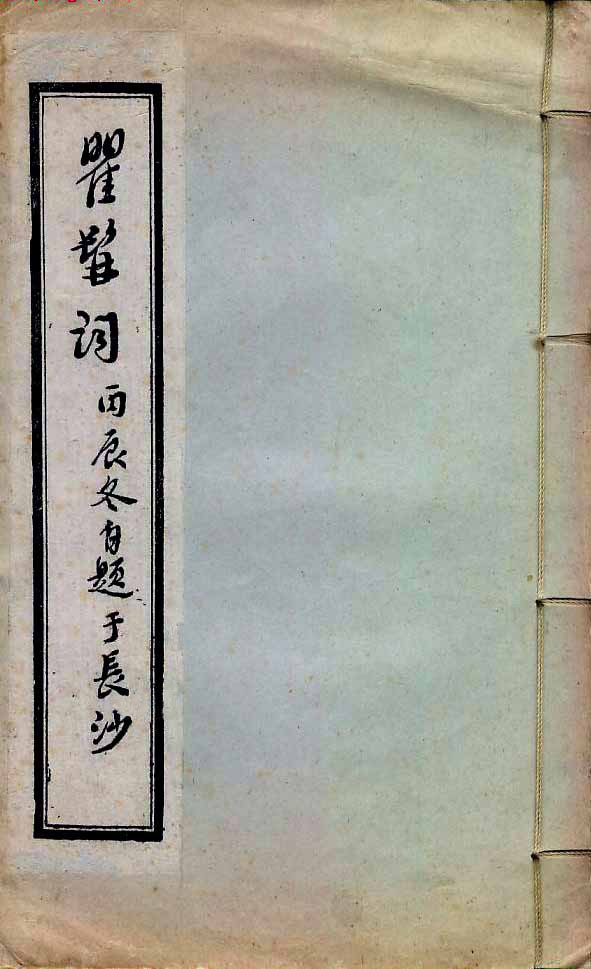 瞿髯词丙辰冬自题于長沙